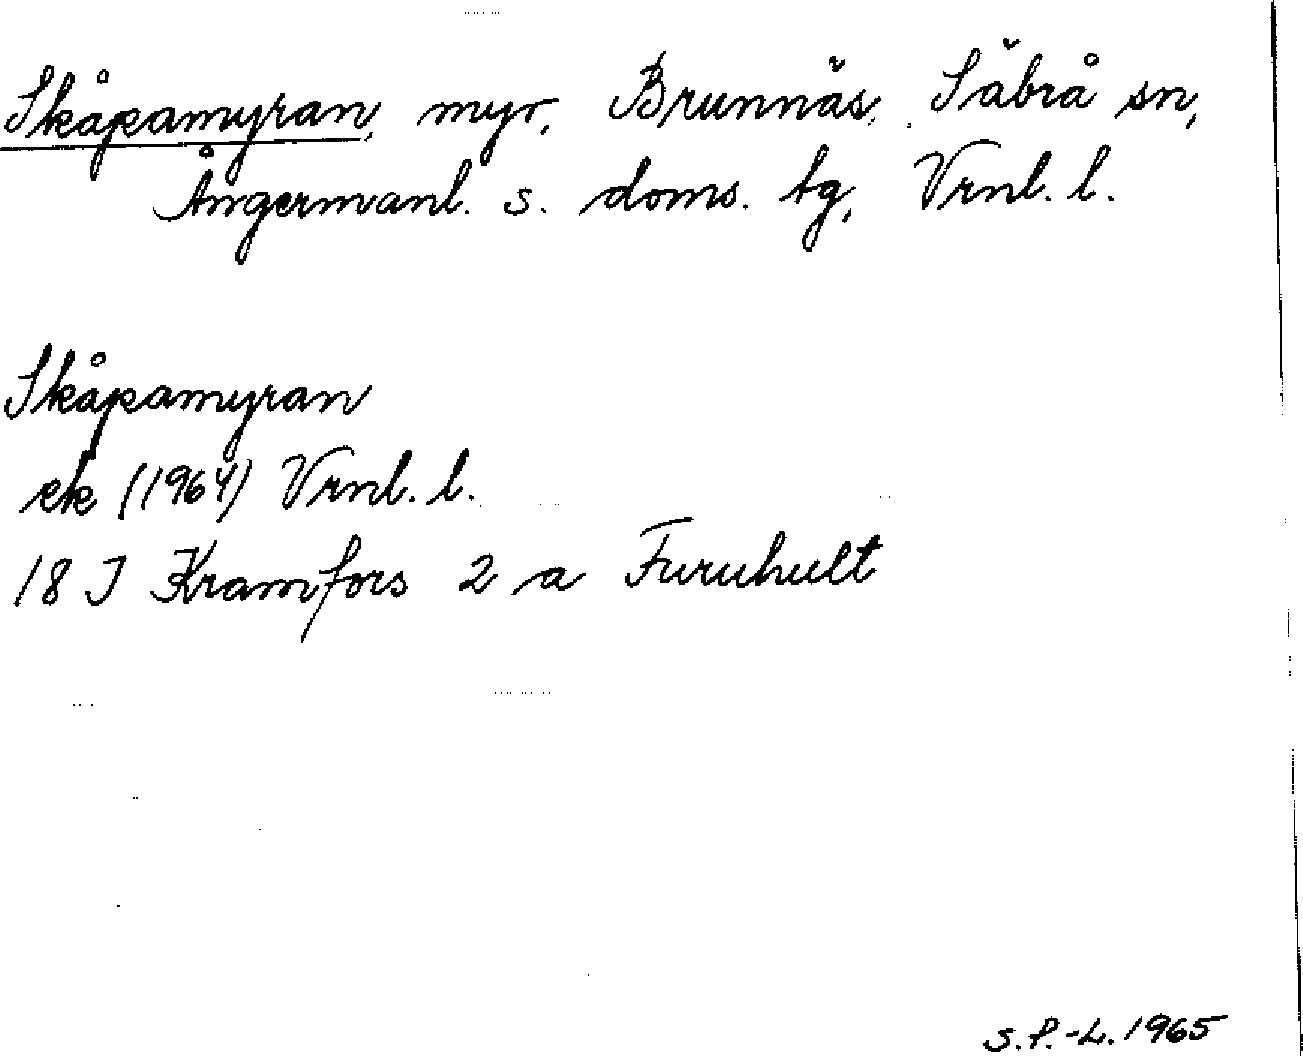 Skåpamyran, myr, Brunnäs, Säbrå sn,
Ångermanl. s. doms. tg, Vrnl. l.
Skåpamyran
ek (1964) Vrnl. l.
18 I Kramfors 2 a Furuhult
S.P.-L. 1965